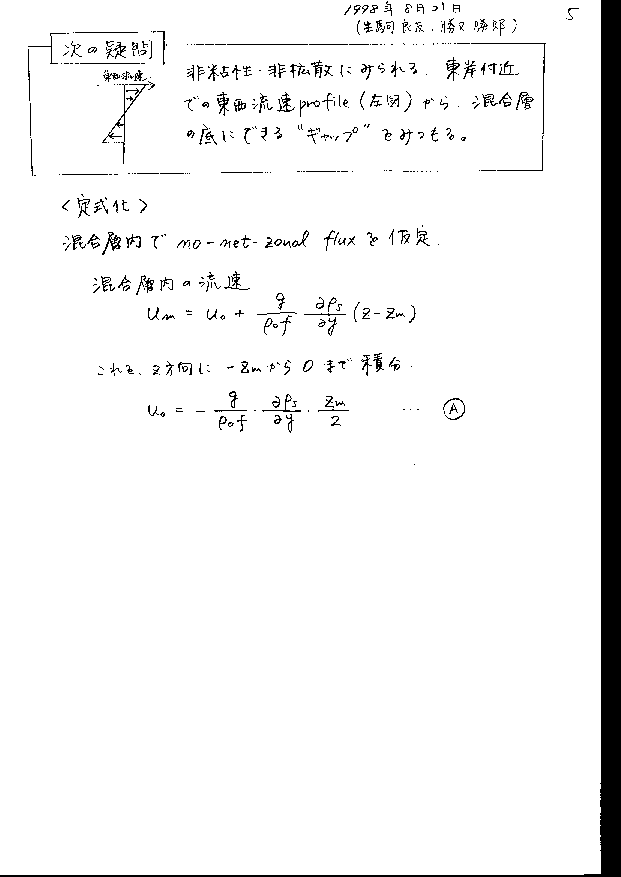 1998年8月21日
5
次の疑問
東西流速
非粘性・非拡散にみられる、東岸付近
での東西流速profile (左図) から、混合層
の底にできる "ギャップ" をみつもる。
<定式化>
混合層内で no-net-zonal flux を仮定.
混合層内の流速
u_m = u_0 + \frac{g}{ρ_0 f} \frac{∂ρ_s}{∂y} (z - z_m)
これを、z方向に -z_mから 0 まで積分.
u_0 = - \frac{g}{ρ_0 f} · \frac{∂ρ_s}{∂y} · \frac{z_m}{2} … Ⓐ